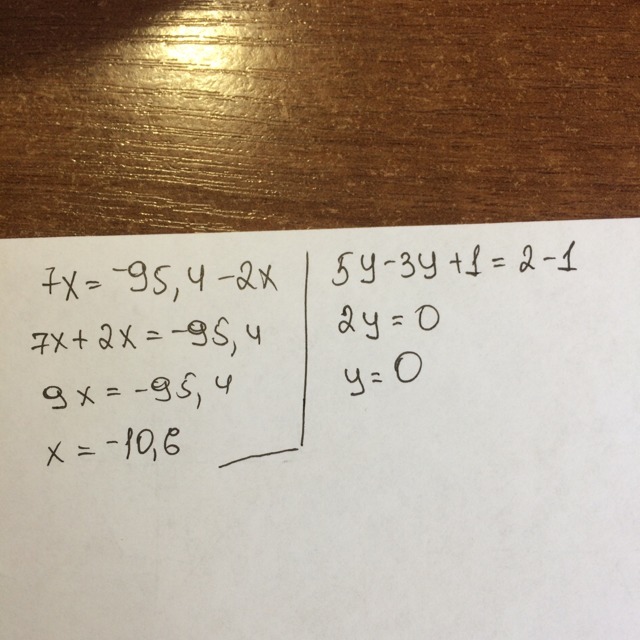 7x = -95,4 - 2x
7x + 2x = -95,4
9x = -95,4
x = -10,6
5y - 3y + 1 = 2 - 1
2y = 0
y = 0